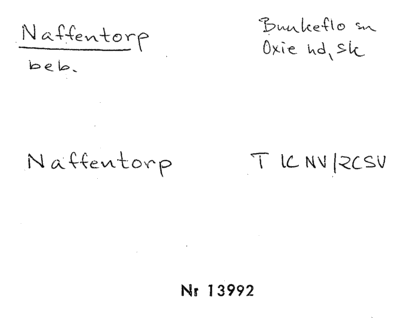 Naffentorp
beb.
Bunkeflo sn
Oxie hd, Sk
Naffentorp
T 1C NV/2CSV
Nr 13992